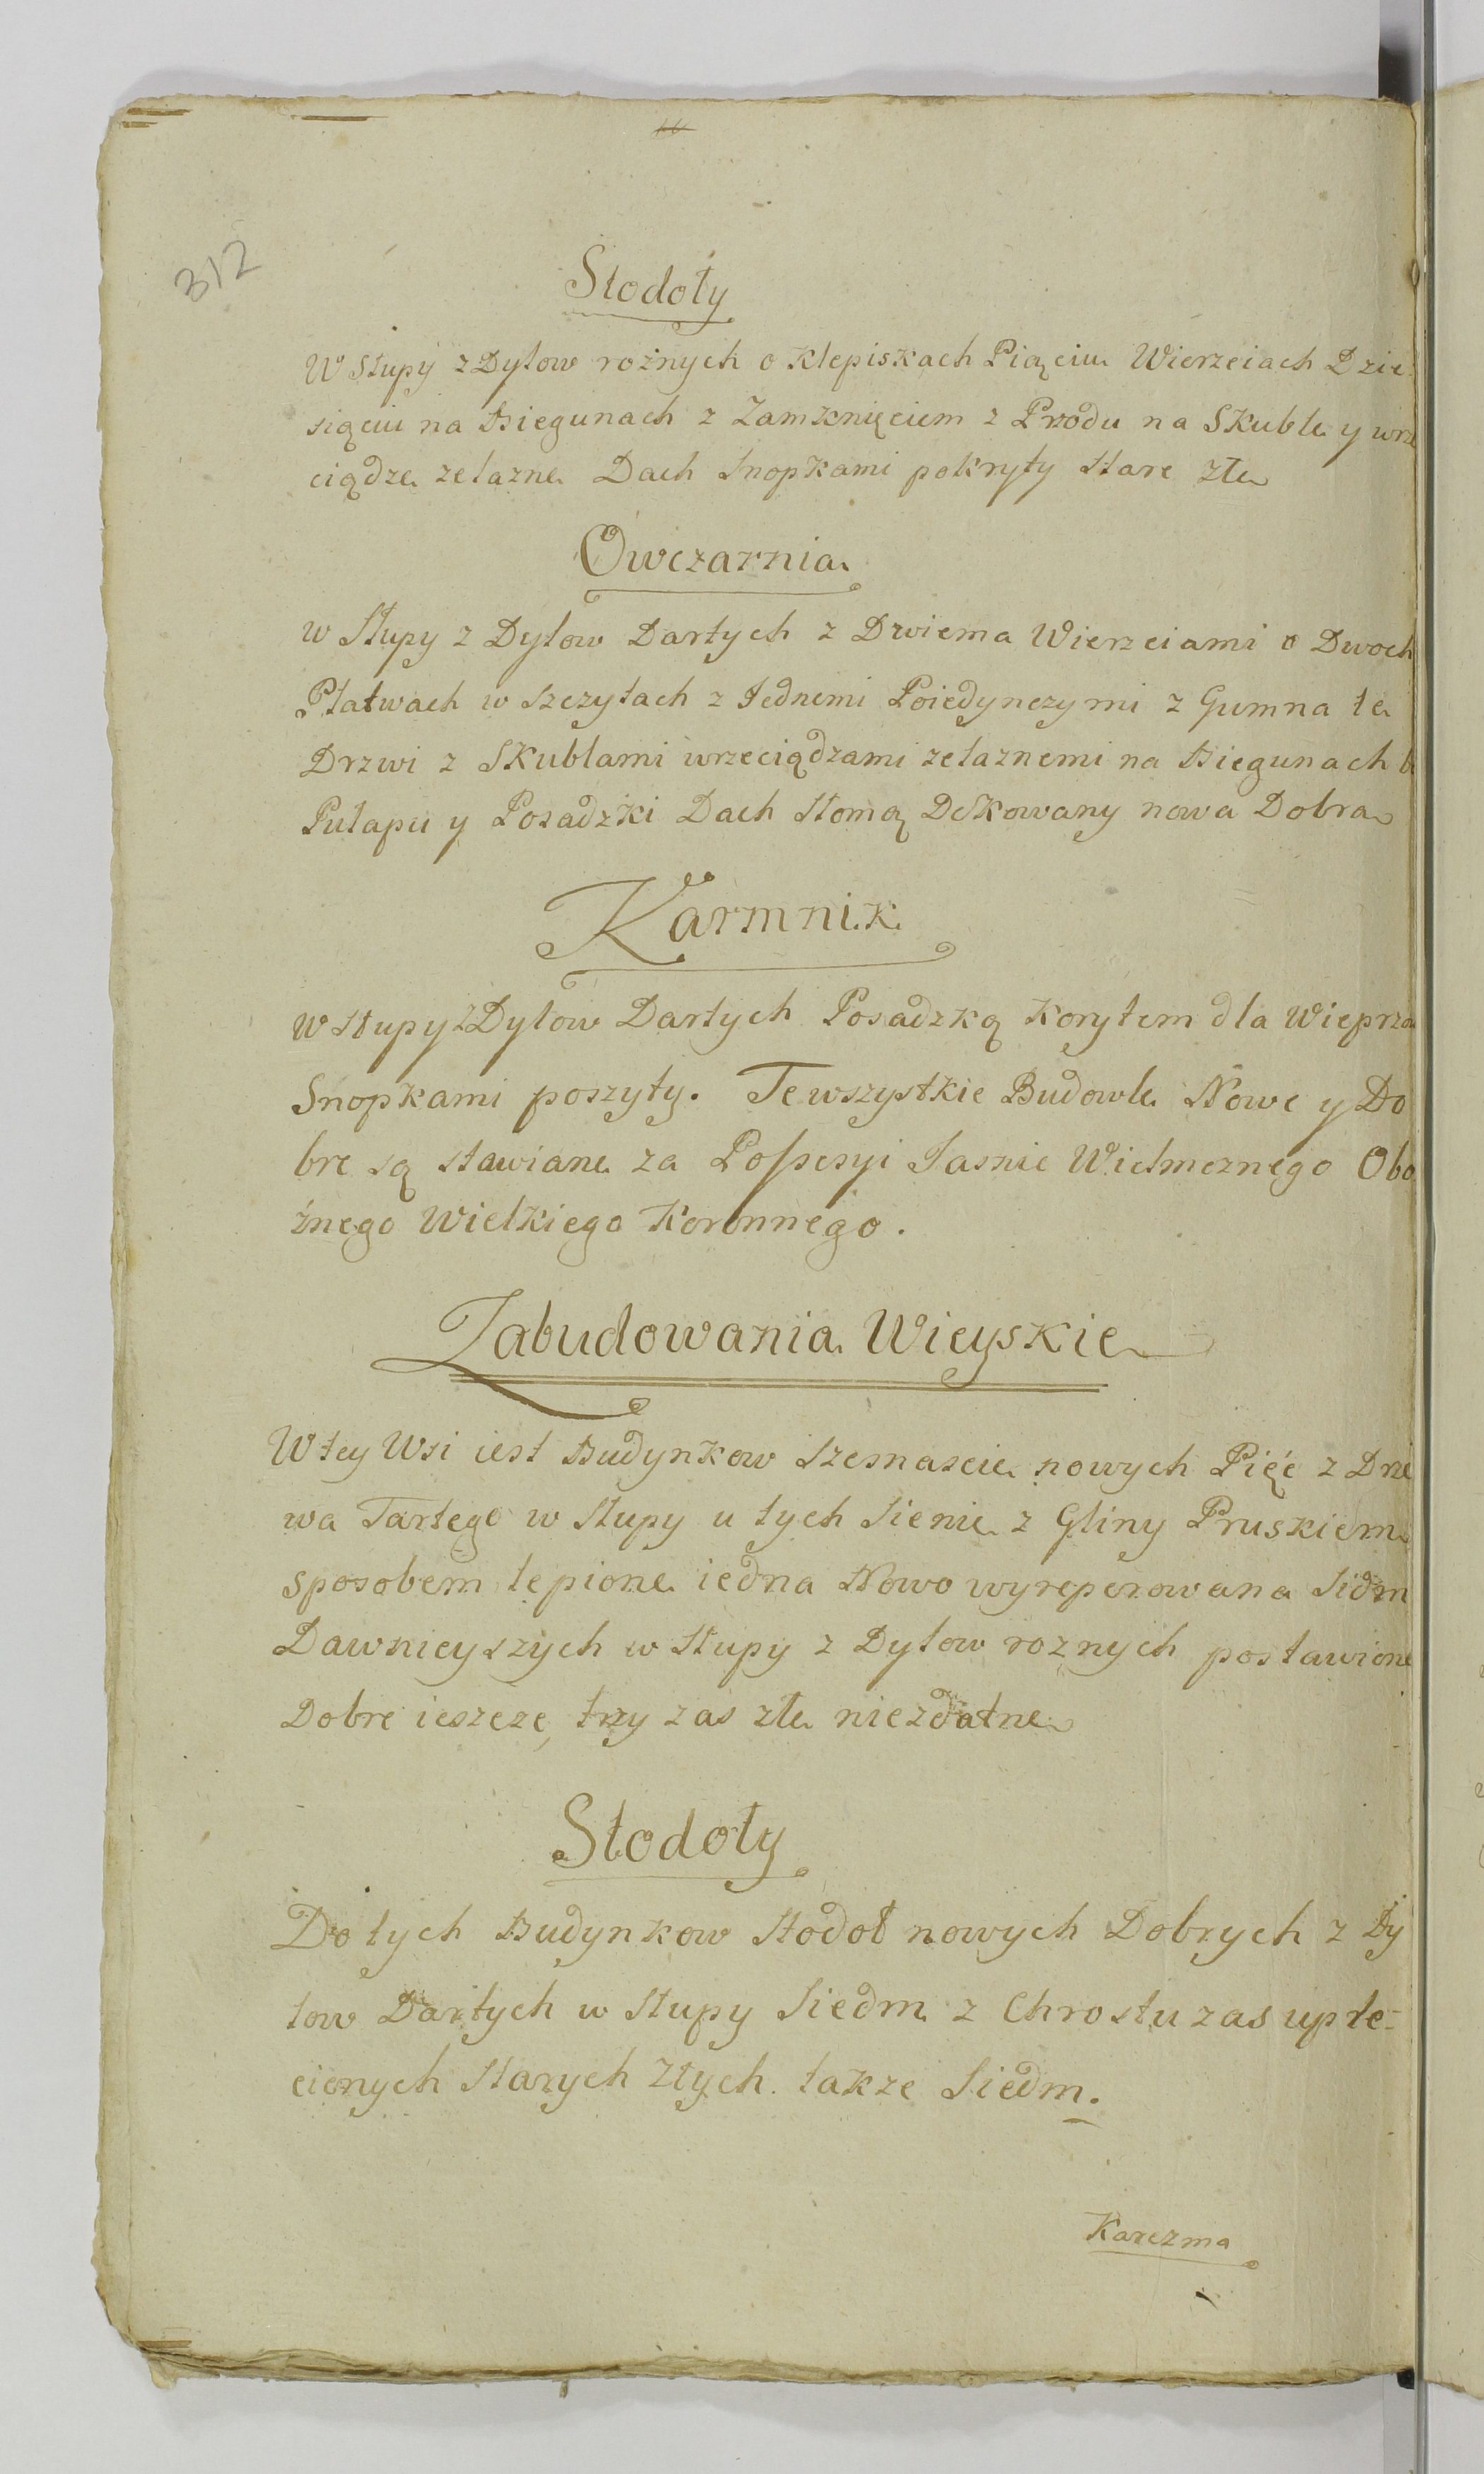 312
Stodoły
W Słupy z Dylow rożnych o Klepiskach Pięciu Wierzeiach Dzie
siąciu na Biegunach z Zamknięciem z Przodu na Skuble y wrze
ciądze zelazne Dach Snopkami pokryty stare złe
Owczarnia
w Słupy z Dylow Dartych z Dwiema Wierzeiami o Dwoch
Płatwach w szczytach z Jednemi Poiedynczymi z Gumna te
Drzwi z Skublami wrzeciądzami zelaznemi na Biegunach b
Pułapu y Posadzki Dach Słomą Dekowany nowa Dobra
Karmnik
w Słupy z Dylow Dartych Posadzką Korytem dla Wieprza
Snopkami poszyty. Te wszystkie Budowle Nowe y Do
bre są stawiane za Possesyi Jasnie Wielmoznego Obo
źnego Wielkiego Koronnego.
Zabudowania Wieyskie
W tey Wsi iest Budynkow Szesnascie nowych Pięć z Drze
wa Tartego w Słupy u tych Sienie z Gliny Pruskiem
sposobem lepione iedna Nowo wyreperowana Sidm
Dawnieyszych w Słupy z Dylow roznych postawione
Dobre ieszcze, trzy zas złe niezdatne
Stodoły
Do tych Budynkow Stodoł nowych Dobrych z Dy
low Dartych w Słupy Siedm z Chrostu zas uple-
cionych Starych Złych takze Siedm.
Karczma